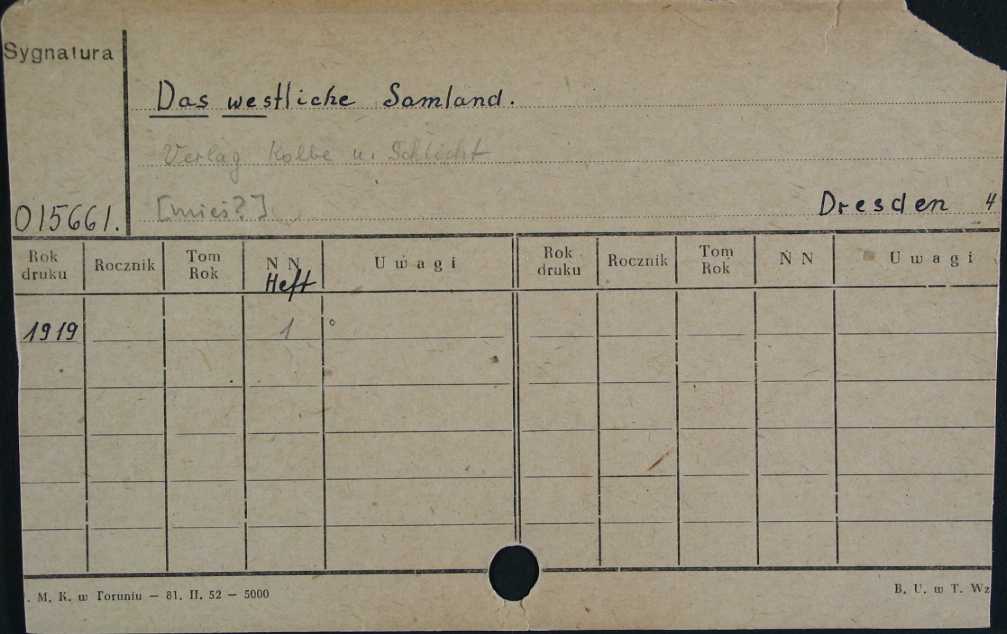 Sygnatura
Das westliche Samland.
Verlag Kolbe u. Schlicht
[mieś?]
Dresden 4
015661.
Rok druku Rocznik Tom Rok N N Uwagi Rok druku Rocznik Tom Rok N N Uwagi
Heft
1919 1
. M. K. w Toruniu — 81. II. 52 — 5000
B. U. w T. Wz